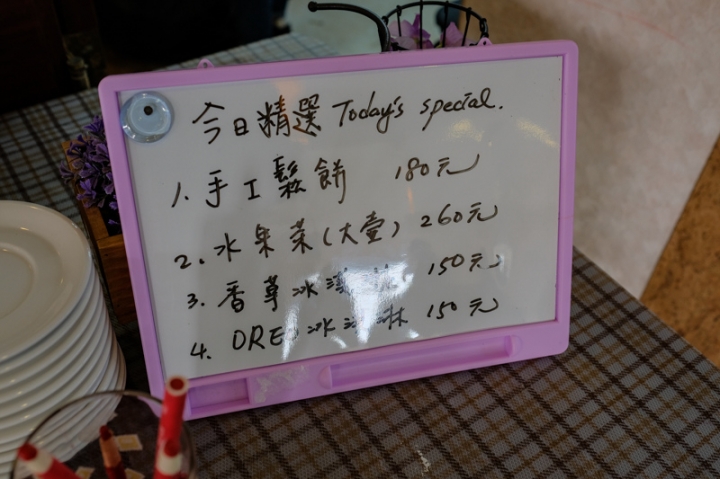 今日精選 Today's special.
1. 手工鬆餅 180元
2. 水果茶(大壺) 260元
3. 香草冰淇淋 150元
4. OREO冰淇淋 150元